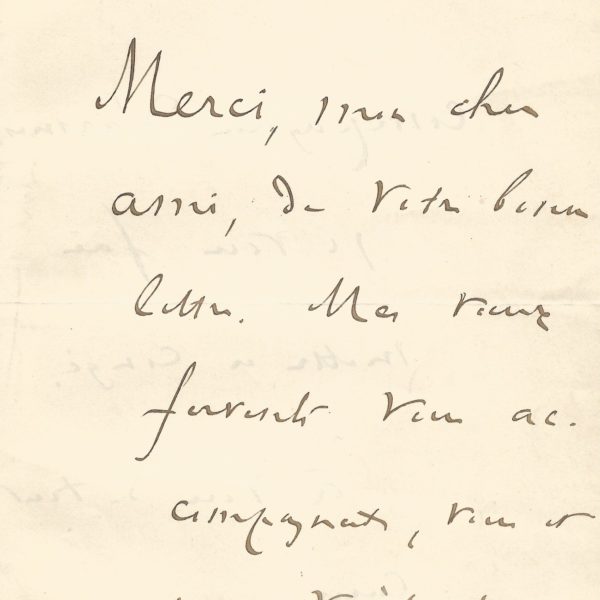 Merci, mon cher
ami, de votre bonne
lettre. Mes vœux
fervents vous ac-
compagnent, vous et